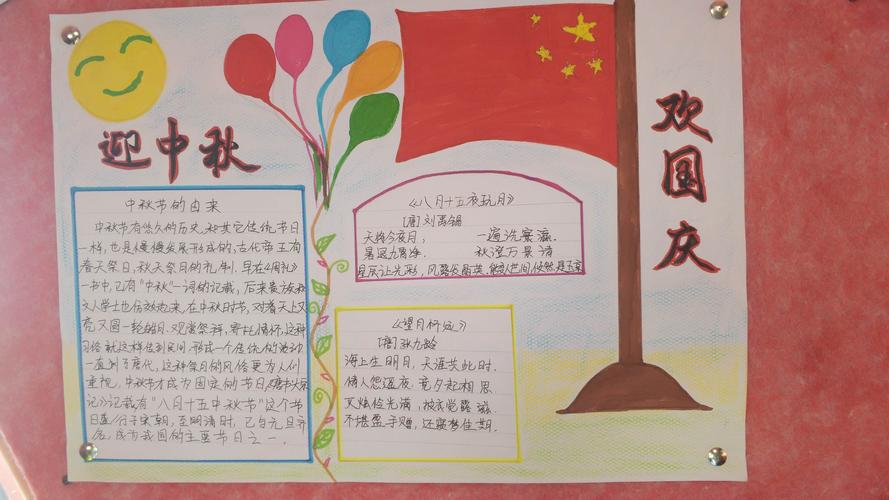 迎中秋
欢国庆
中秋节的由来
中秋节有悠久的历史,和其它传统节日
一样,也是慢慢发展形成的,古代帝王有
春天祭日,秋天祭月的礼制,早在《周礼》
一书中,已有"中秋"一词的记载,后来贵族和
文人学士也仿效起来,在中秋时节,对着天上又
亮又圆一轮皓月,观赏祭拜,寄托情怀,这种
习俗就这样传到民间,形成一个传统的活动
一直到了唐代,这种祭月的风俗更为人们
重视,中秋节才成为固定的节日,《唐书太宗
记》记载有"八月十五中秋节"这个节
日盛行于宋朝,至明清时,已与元旦齐
名,成为我国的主要节日之一.
《八月十五夜玩月》
[唐]刘禹锡
天将今夜月, 一遍洗寰瀛.
暑退九霄净. 秋澄万景清
星辰让光彩,风露发晶英.能变人世间,攸然是玉京
《望月怀远》
[唐]张九龄
海上生明月,天涯共此时.
情人怨遥夜.竟夕起相思
灭烛怜光满,披衣觉露滋.
不堪盈手赠,还寝梦佳期.